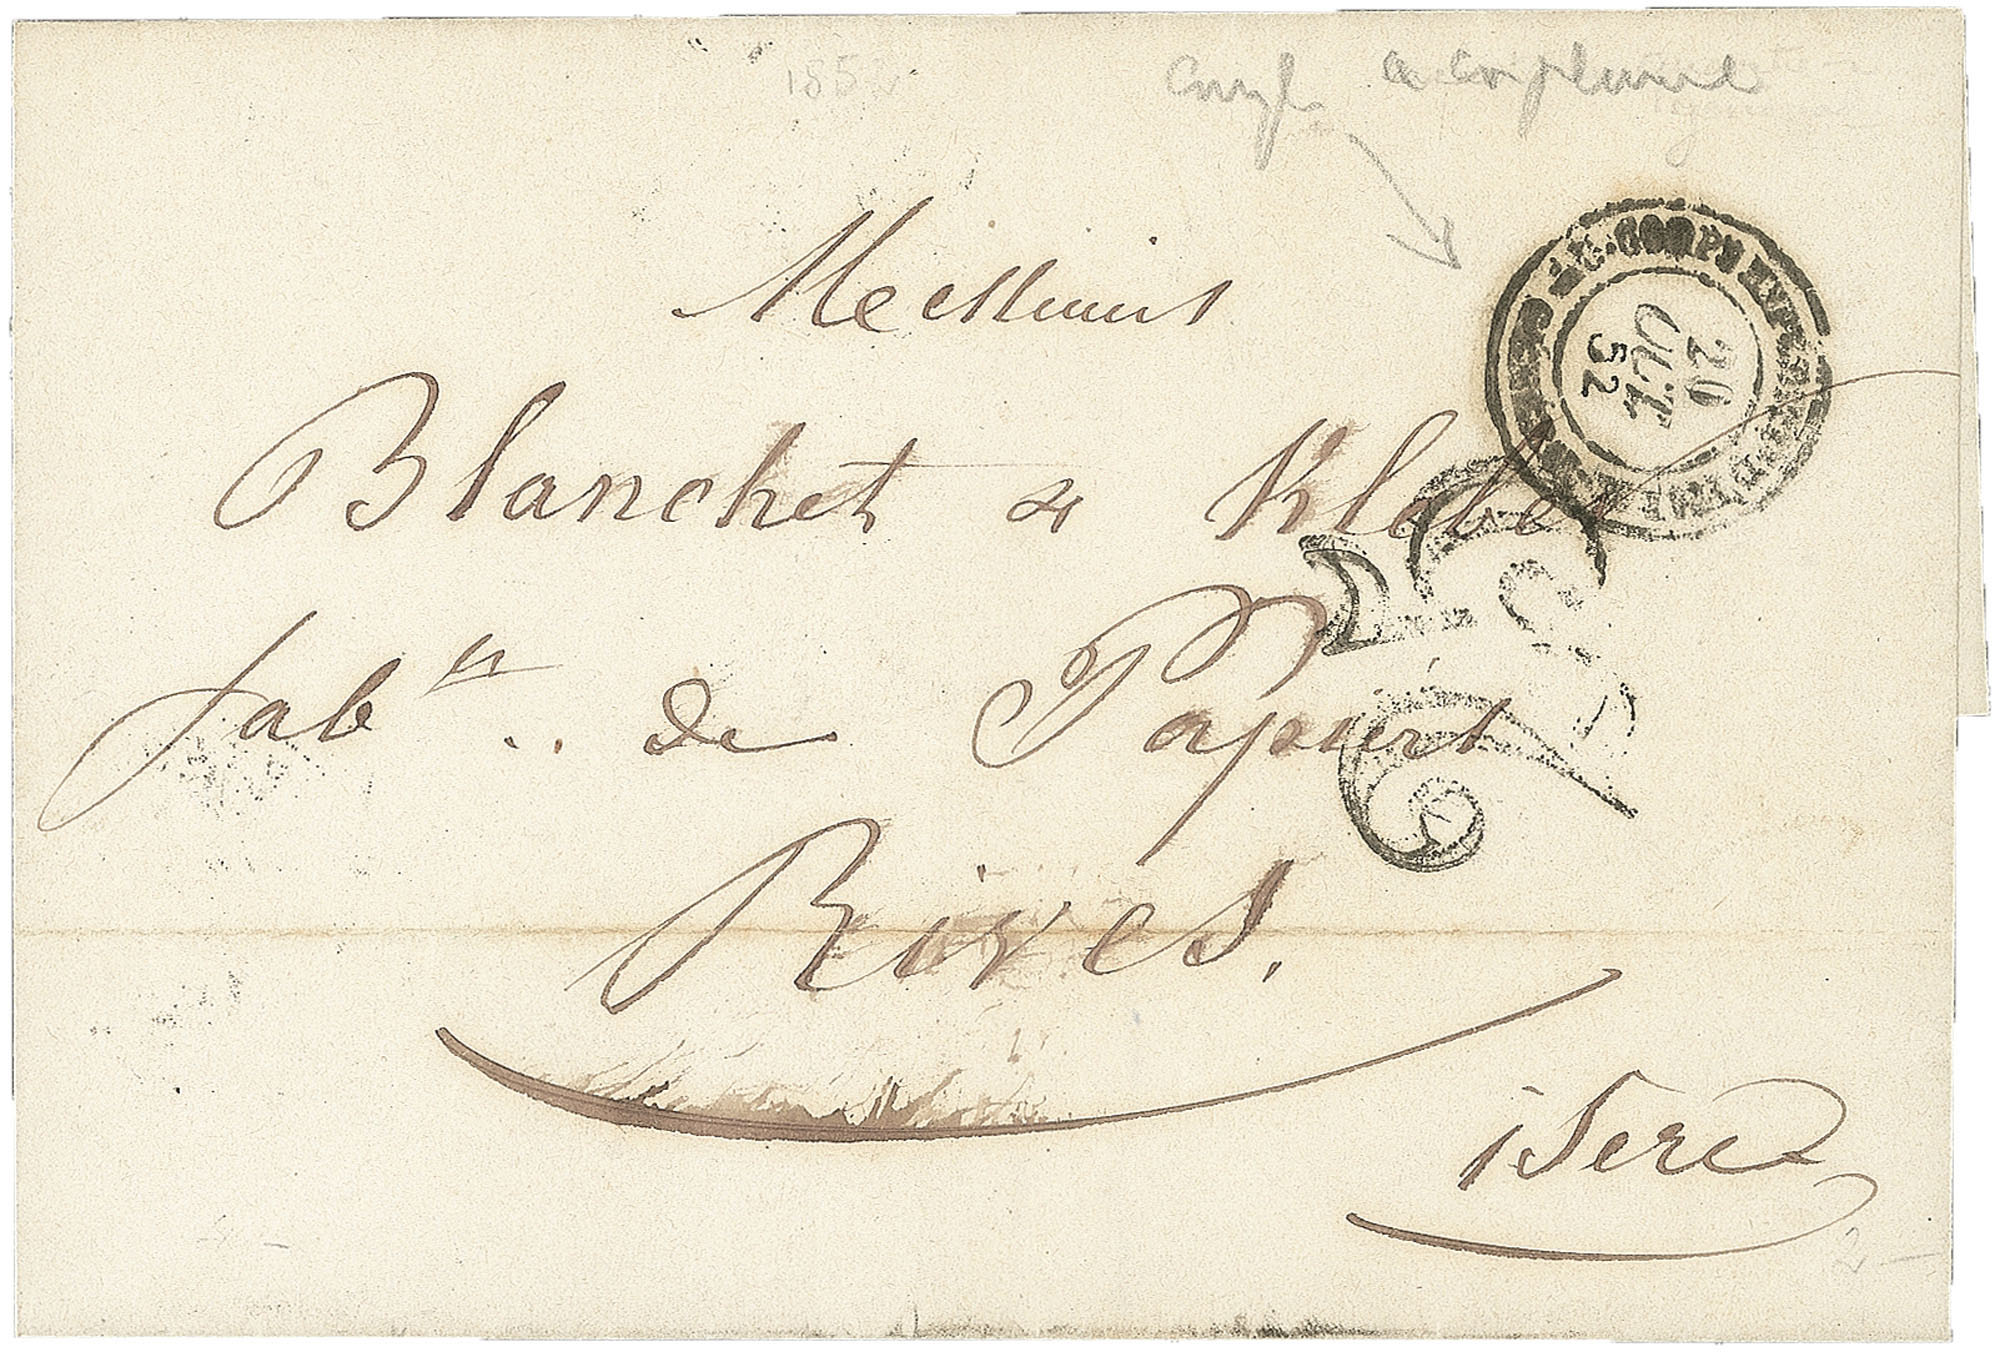 1852
Messieurs
Blanchet & Kleber
fab.ts .. de Papiers
Rives.
isere
20
OCT.
52
25
2 –